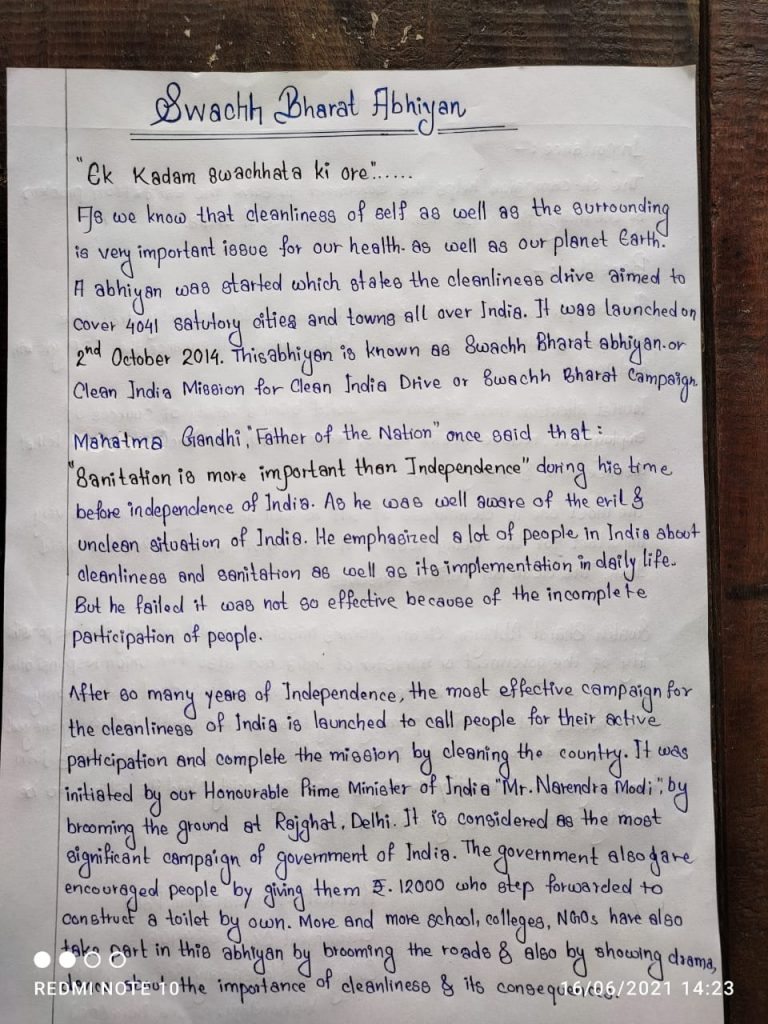 Swachh Bharat Abhiyan
"Ek Kadam swachhata ki ore".....
As we know that cleanliness of self as well as the surrounding
is very important issue for our health. as well as our planet Earth.
A abhiyan was started which states the cleanliness drive aimed to
cover 4041 satutory cities and towns all over India. It was launched on
2nd October 2014. This abhiyan is known as Swachh Bharat abhiyan.or
Clean India Mission for Clean India Drive or Swachh Bharat Campaign.
Mahatma Gandhi, "Father of the Nation" once said that :
"Sanitation is more important than Independence" during his time
before independence of India. As he was well aware of the evil &
unclean situation of India. He emphasized a lot of people in India about
cleanliness and sanitation as well as its implementation in daily life.
But he failed it was not so effective because of the incomplete
participation of people.
After so many years of Independence, the most effective campaign for
the cleanliness of India is launched to call people for their active
participation and complete the mission by cleaning the country. It was
initiated by our Honourable Prime Minister of India "Mr. Narendra Modi", by
brooming the ground at Rajghat, Delhi. It is considered as the most
significant campaign of government of India. The government also gave
encouraged people by giving them ₹. 12000 who step forwarded to
construct a toilet by own. More and more school, colleges, NGOs have also
take part in this abhiyan by brooming the roads & also by showing drama,
the importance of cleanliness & its consequences.
REDMI NOTE 10
16/06/2021 14:23